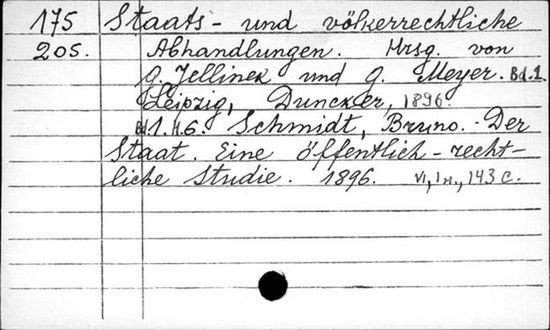 175 Staats- und völkerrechtliche
205. Abhandlungen. Hrsg. von
G. Jellinek und G. Meyer. Bd.1.
Leipzig, Duncker, 1896.
Bd 1. H6. Schmidt, Bruno. - Der
Staat. Eine öffentlich-recht-
liche Studie. 1896. VI, 1 н., 143 с.